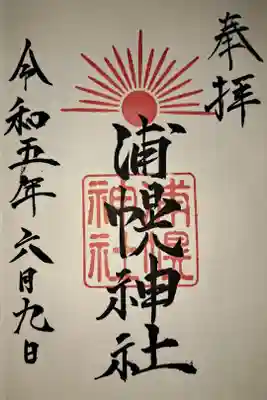 奉拝
浦幌神社
浦幌神社
令和五年六月九日